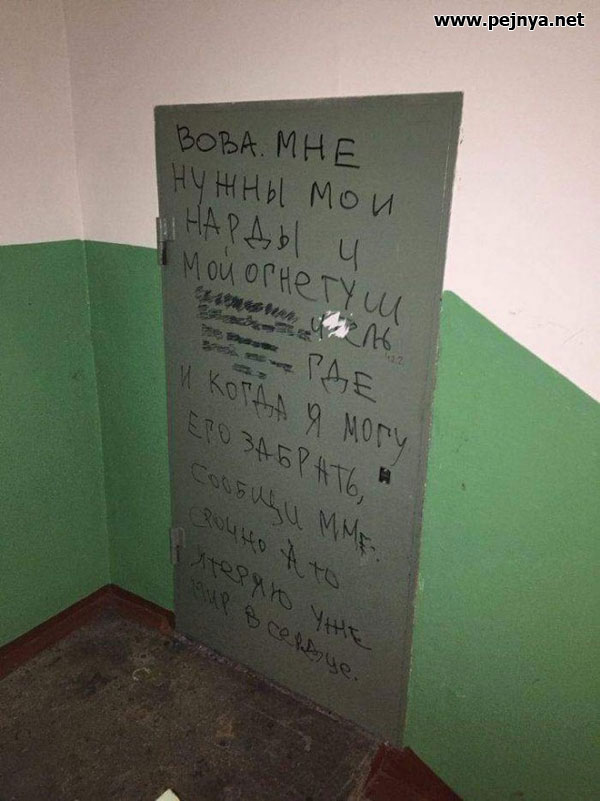 www.pejnya.net
ВОВА. МНЕ
НУЖНЫ МОИ
НАРДЫ И
МОЙ ОГНЕТУШ
ИТЕЛЬ
ГДЕ
И КОГДА Я МОГУ
ЕГО ЗАБРАТЬ,
СООБЩИ МНЕ.
СРОЧНО А ТО
Я ТЕРЯЮ УЖЕ
МИР В СЕРДЦЕ.